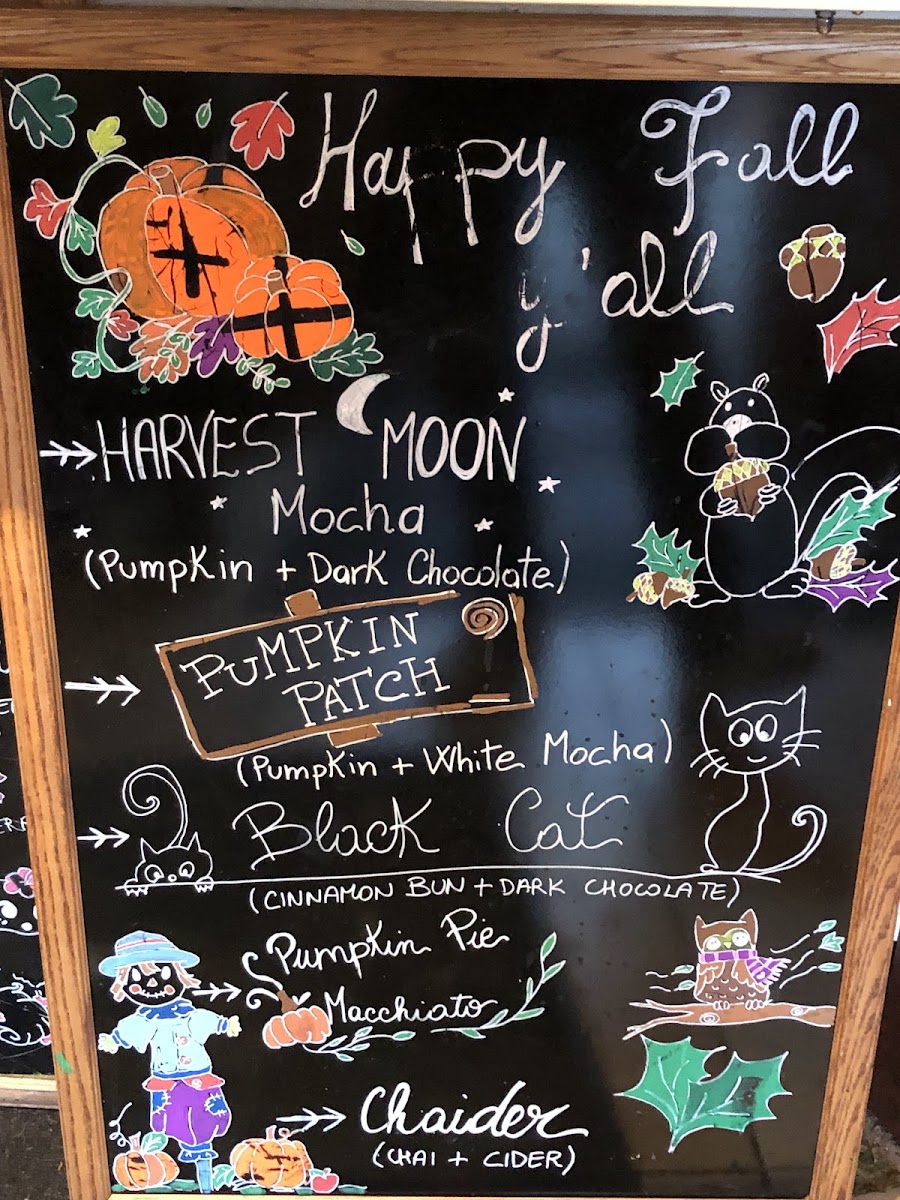 Happy Fall
y'all
HARVEST MOON
Mocha
(Pumpkin + Dark Chocolate)
PUMPKIN
PATCH
(Pumpkin + White Mocha)
Black Cat
(CINNAMON BUN + DARK CHOCOLATE)
Pumpkin Pie
Macchiato
Chaider
(CHAI + CIDER)